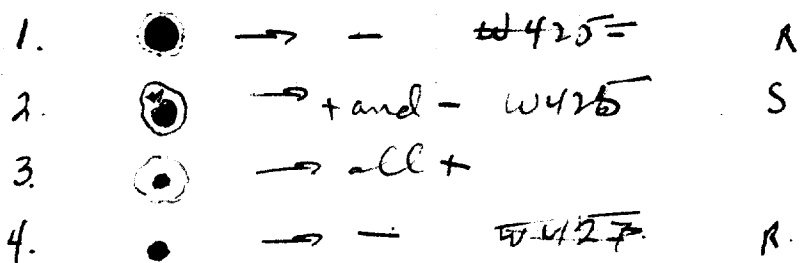 1. → - W425 R
2. → + and - W425 S
3. → all +
4. → - W427 R.